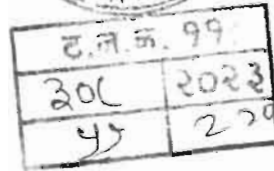 ट.न.क. ११
३०८ २०२३
५५ २२०